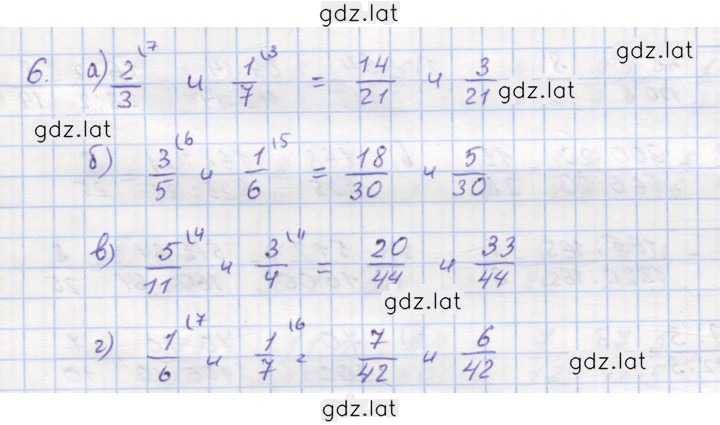 gdz.lat
gdz.lat
6. а) 2/3 (7 и 1/7 (3 = 14/21 и 3/21
gdz.lat
gdz.lat
б) 3/5 (6 и 1/6 (5 = 18/30 и 5/30
в) 5/11 (4 и 3/4 (11 = 20/44 и 33/44
gdz.lat
г) 1/6 (7 и 1/7 (6 = 7/42 и 6/42
gdz.lat
gdz.lat